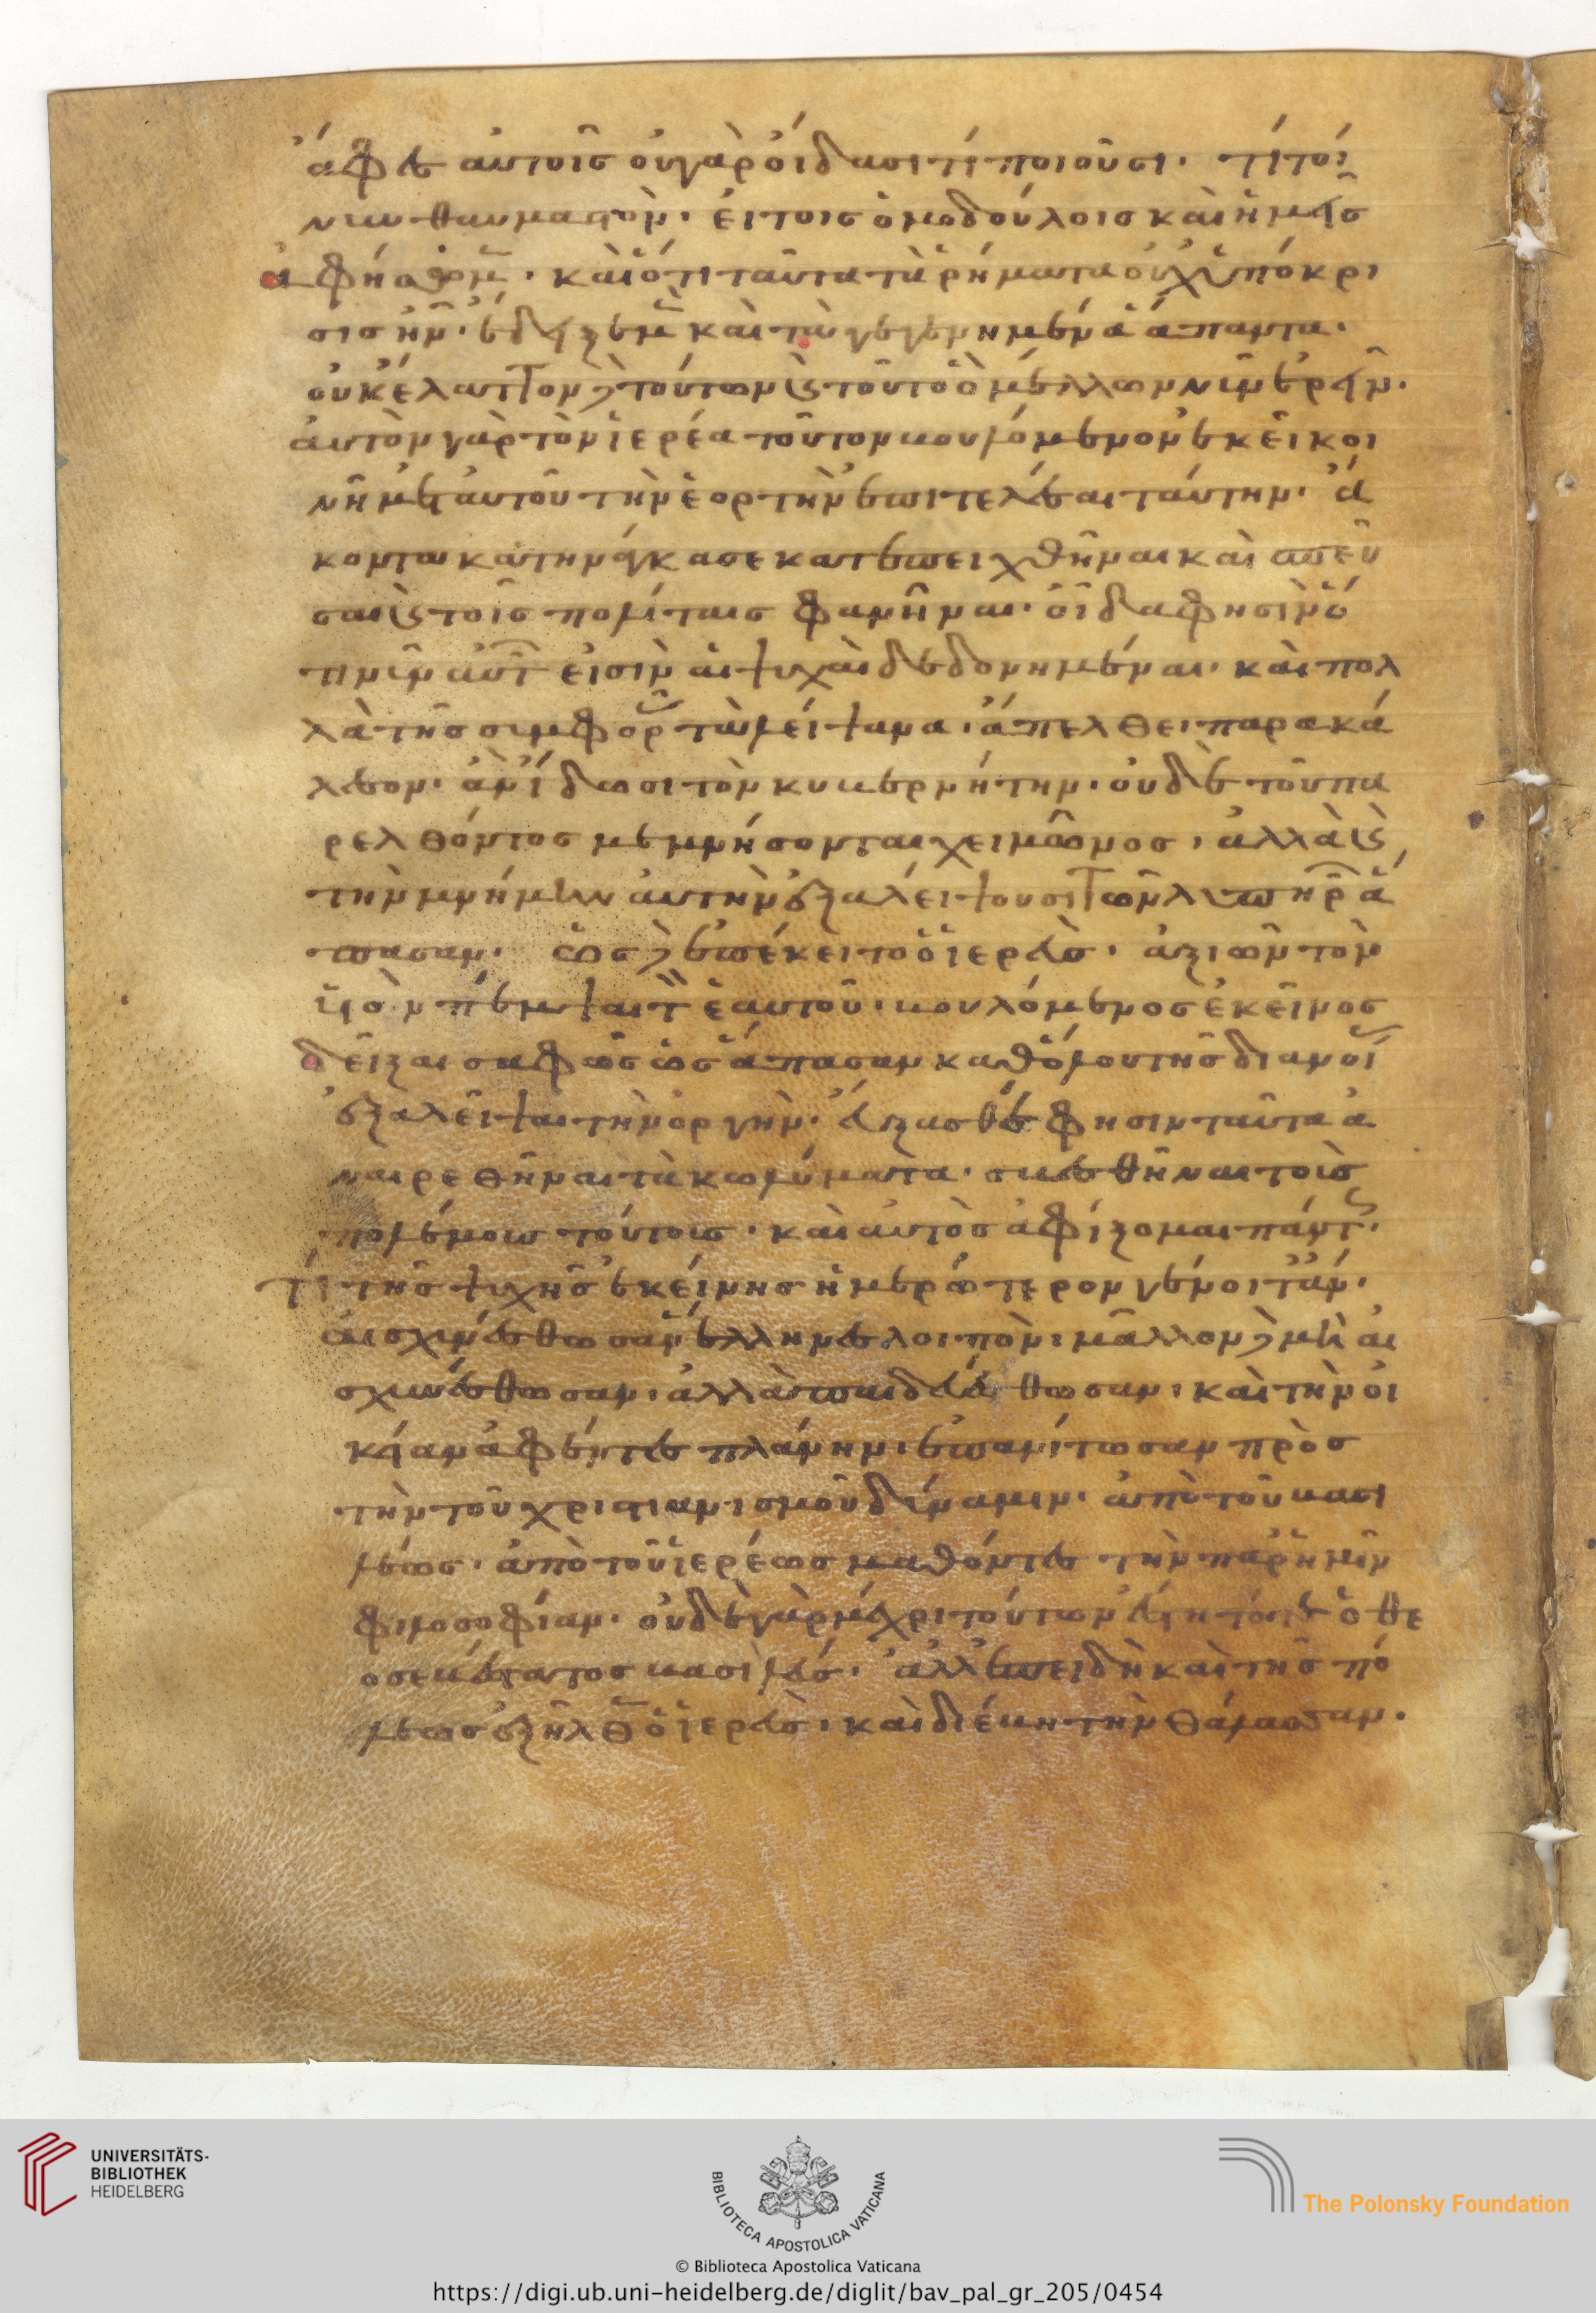 ἄφες αὐτοῖς οὐ γὰρ οἴδασι τί ποιοῦσι. τί τοί
νυν θαυμαστὸν. εἰ τοῖς ὁμοδούλοις καὶ ἡμεῖς
ἀφήσομεν. καὶ ὅτι ταῦτα τὰ ῥήματα οὐχ ὑπόκρι
σις ἦν. ἔδειξε μὲν καὶ τὰ γεγενημένα ἅπαντα.
οὐκ ἔλαττον δὲ τούτων καὶ τοῦτο ὃ μέλλω νῦν ἐρεῖν.
αὐτὸν γὰρ τὸν ἱερέα τοῦτον βουλόμενον ἐκεῖ κοι
νῇ μετ αὐτοῦ τὴν ἑορτὴν ἐπιτελέσαι ταύτην. ἄ
κοντα κατηνάγκασε κατεπειχθῆναι καὶ σπεῦ
σαι καὶ τοῖς πολίταις φανῆναι. οἶδα φησὶν ὅ
τι νῦν αὐτῶν εἰσὶν αἱ ψυχαὶ δεδονημέναι. καὶ πολ
λὰ τῆς συμφορᾶς τὰ λείψανα. ἄπελθε παρακά
λεσον. ἂν ἴδωσι τὸν κυβερνήτην. οὐδὲ τοῦ πα
ρελθόντος μεμνήσονται χειμῶνος. ἀλλὰ καὶ
τὴν μνήμην αὐτὴν ἐξαλείψουσι τῶν λυπηρῶν ἅ
πασαν. ὡς δὲ ἐπέκειτο ὁ ἱερεὺς. ἀξιῶν τὸν
υἱὸν πέμψαι τὸν ἑαυτοῦ. βουλόμενος ἐκεῖνος
δεῖξαι σαφῶς ὡς ἅπασαν καθόλου τῆς διανοίας
ἐξαλεῖψαι τὴν ὀργὴν. εὔξασθέ φησιν ταῦτα ἀ
ναιρεθῆναι τὰ κωλύματα. σβεσθῆναι τοὺς
πολέμους τούτους. καὶ αὐτὸς ἀφίξομαι πάντως.
τί τῆς ψυχῆς ἐκείνης ἡμερώτερον γένοιτ ἄν.
αἰσχυνέσθωσαν ἕλληνες λοιπὸν. μᾶλλον δὲ μὴ αἰ
σχυνέσθωσαν. ἀλλὰ παιδευέσθωσαν. καὶ τὴν οἰ
κείαν ἀφέντες πλάνην. ἐπανίτωσαν πρὸς
τὴν τοῦ χριστιανισμοῦ δύναμιν. ἀπὸ τοῦ βασι
λέως. ἀπὸ τοῦ ἱερέως μαθόντες τὴν παρ ἡμῖν
φιλοσοφίαν. οὐδὲ γὰρ μέχρι τούτων ἔστη ὁ θε
οσεβέστατος βασιλεὺς. ἀλλ ἐπειδὴ καὶ τῆς πό
λεως ἐξῆλθεν ὁ ἱερεὺς. καὶ διέβη τὴν θάλασσαν.
UNIVERSITÄTS-
BIBLIOTHEK
HEIDELBERG
BIBLIOTECA APOSTOLICA VATICANA
The Polonsky Foundation
© Biblioteca Apostolica Vaticana
https://digi.ub.uni-heidelberg.de/diglit/bav_pal_gr_205/0454